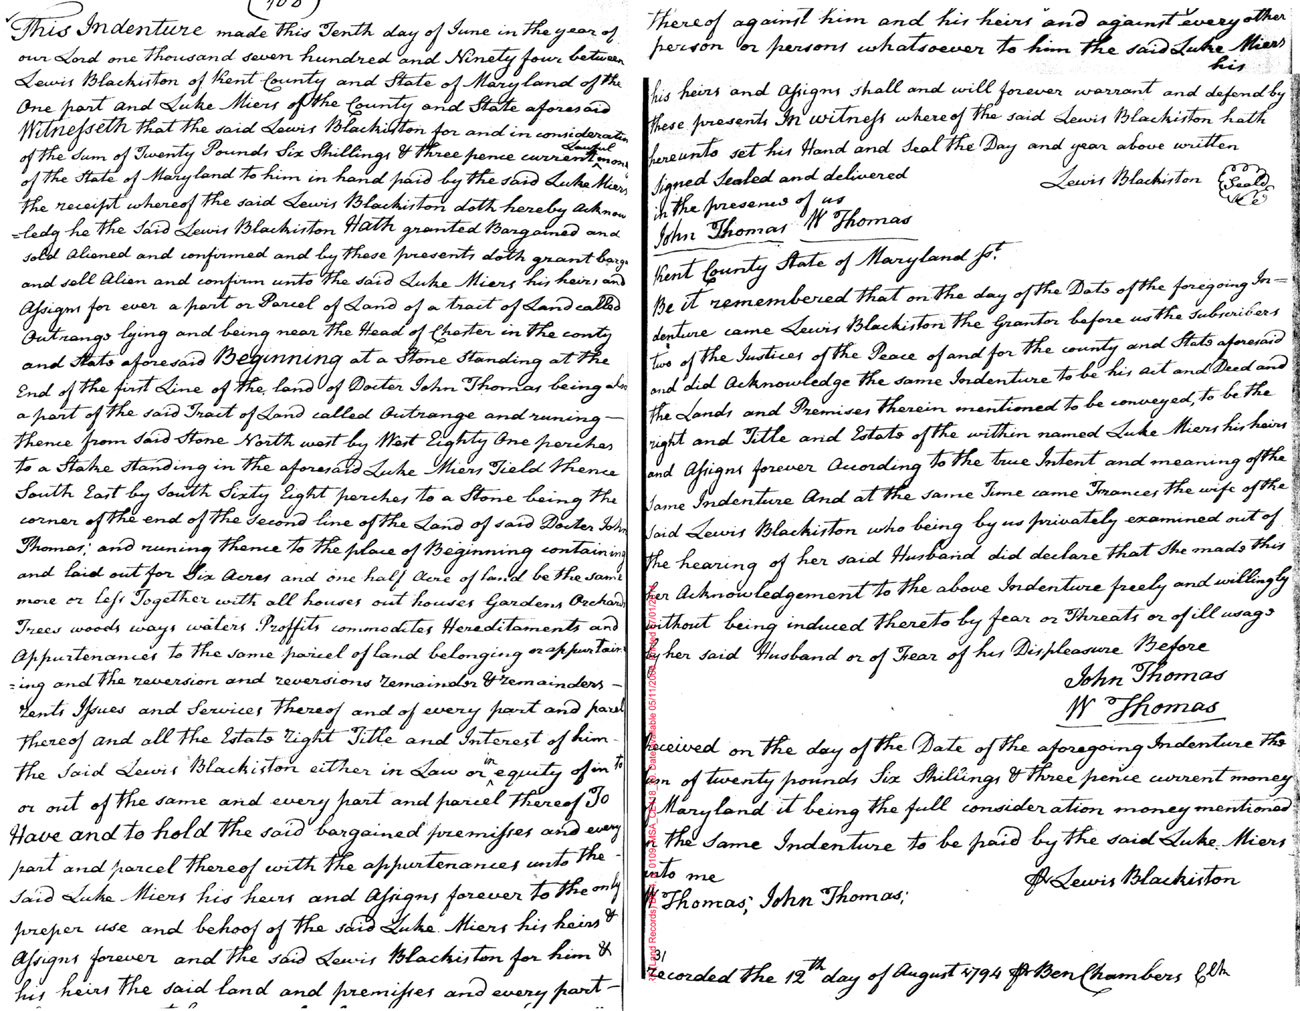 This Indenture made this Tenth day of June in the year of
our Lord one thousand seven hundred and Ninety four between
Lewis Blackiston of Kent County and State of Maryland of the
One part and Luke Miers of the County and State aforesaid
Witnesseth that the said Lewis Blackiston for and in consideration
of the sum of Twenty Pounds Six Shillings & three pence current lawful mony
of the State of Maryland to him in hand paid by the said Luke Miers
the receipt whereof the said Lewis Blackiston doth hereby Acknow
=ledg he the said Lewis Blackiston Hath granted Bargained and
sold Aliened and confirmed and by these presents doth grant barga
and sell Alien and confirm unto the said Luke Miers his heirs and
Assigns for ever a part or Parcel of Land of a tract of Land called
Outrange lying and being near the Head of Chester in the conty
and State aforesaid Beginning at a Stone Standing at the
End of the first Line of the land of Docter John Thomas being also
a part of the said Tract of Land called Outrange and runing—
thence from said Stone North west by West Eighty One perches
to a Stake standing in the aforesaid Luke Miers Field thence
South East by South Sixty Eight perches to a Stone being the
corner of the end of the second line of the Land of said Docter John
Thomas; and runing thence to the place of Beginning containing
and laid out for Six Acres and one half Acre of land be the same
more or less Together with all houses out houses Gardens Orchard
Trees woods ways waters Proffits commodites Hereditaments and
Appurtenances to the same parcel of land belonging or appurtain
=ing and the reversion and reversions remainder & remainders—
rents Issues and Services thereof and of every part and parcel
thereof and all the Estate right Title and Interest of him-
the said Lewis Blackiston either in Law or in equity of in to
or out of the same and every part and parcel thereof To
Have and to hold the said bargained premisses and every
part and parcel thereof with the appurtenances unto the-
said Luke Miers his heirs and Assigns forever to the only
preper use and behoof of the said Luke Miers his heirs &
Assigns forever and the said Lewis Blackiston for him &
his heirs the said land and premisses and every part—
thereof against him and his heirs and against every other
person or persons whatsoever to him the said Luke Miers
his
his heirs and Assigns shall and will forever warrant and defend by
these presents In witness whereof the said Lewis Blackiston hath
hereunto set his Hand and Seal the Day and year above written
Signed Sealed and delivered Lewis Blackiston Seald
in the presence of us
John Thomas W Thomas
Kent County State of Maryland Sst.
Be it remembered that on the day of the Date of the foregoing In=
denture came Lewis Blackiston the Grantor before us the Subscribers
two of the Justices of the Peace of and for the county and State aforesaid
and did Acknowledge the same Indenture to be his act and Deed and
the Lands and Premises therein mentioned to be conveyed, to be the
right and Title and Estate of the within named Luke Miers his heirs
and Assigns forever According to the true Intent and meaning of the
same Indenture And at the same Time came Frances the wife of the
said Lewis Blackiston who being by us privately examined out of
the hearing of her said Husband did declare that She made this
her Acknowledgement to the above Indenture freely and willingly
without being induced thereto by fear or Threats or of ill usage
by her said Husband or of Fear of his Displeasure Before
John Thomas
W Thomas
Received on the day of the Date of the aforegoing Indenture the
sum of twenty pounds Six Shillings & three pence current money
of Maryland it being the full consideration money mentioned
in the Same Indenture to be paid by the said Luke Miers
unto me Lewis Blackiston
W Thomas; John Thomas;
31
recorded the 12th day of August 1794 Ben Chambers Clk